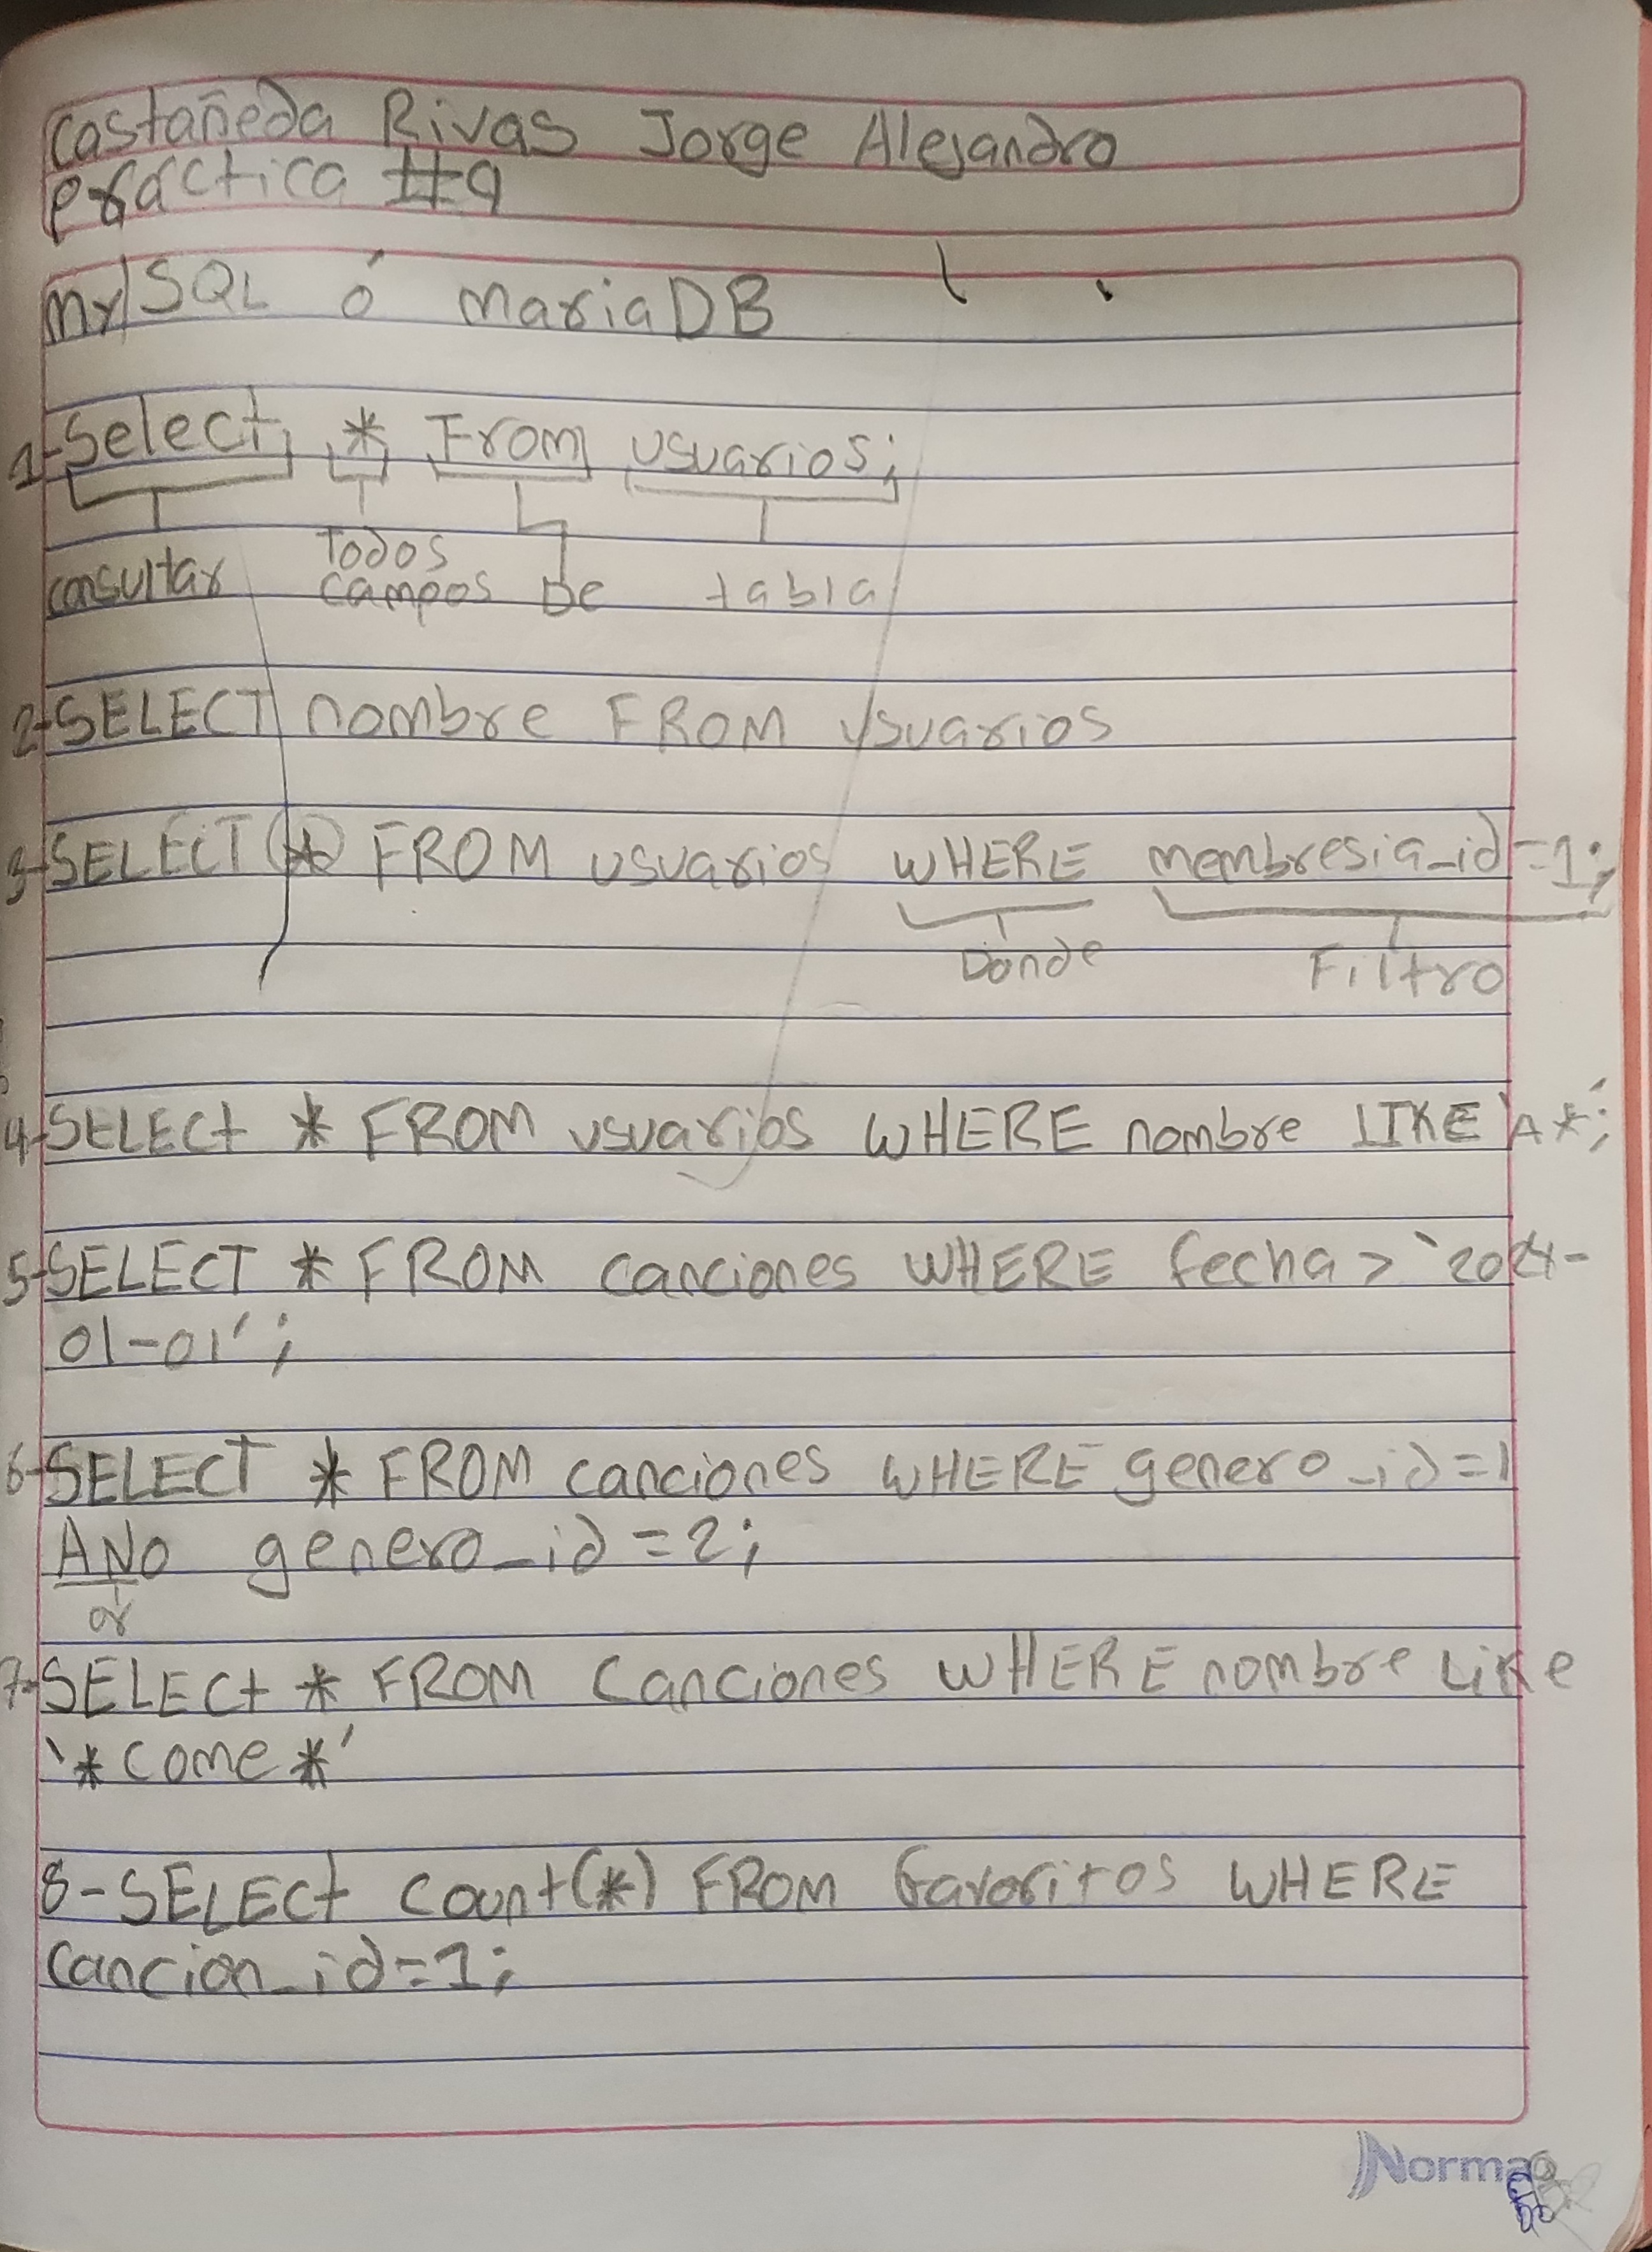 Castañeda Rivas Jorge Alejandro
Práctica #9
My/SQL ó mariaDB
1-Select * From usuarios;
consultar Todos campos De tabla
2-SELECT nombre FROM usuarios
3-SELECT * FROM usuarios WHERE membresia_id=1;
Donde Filtro
4-SELECt * FROM usuarios WHERE nombre LIKE 'A*';
5-SELECT * FROM canciones WHERE fecha > '2021-
01-01';
6-SELECT * FROM canciones WHERE genero_id=1
AND genero_id=2;
or
7-SELECt * FROM Canciones WHERE nombre Like
'*come*'
8-SELECt count(*) FROM favoritos WHERE
cancion_id=1;
Norma